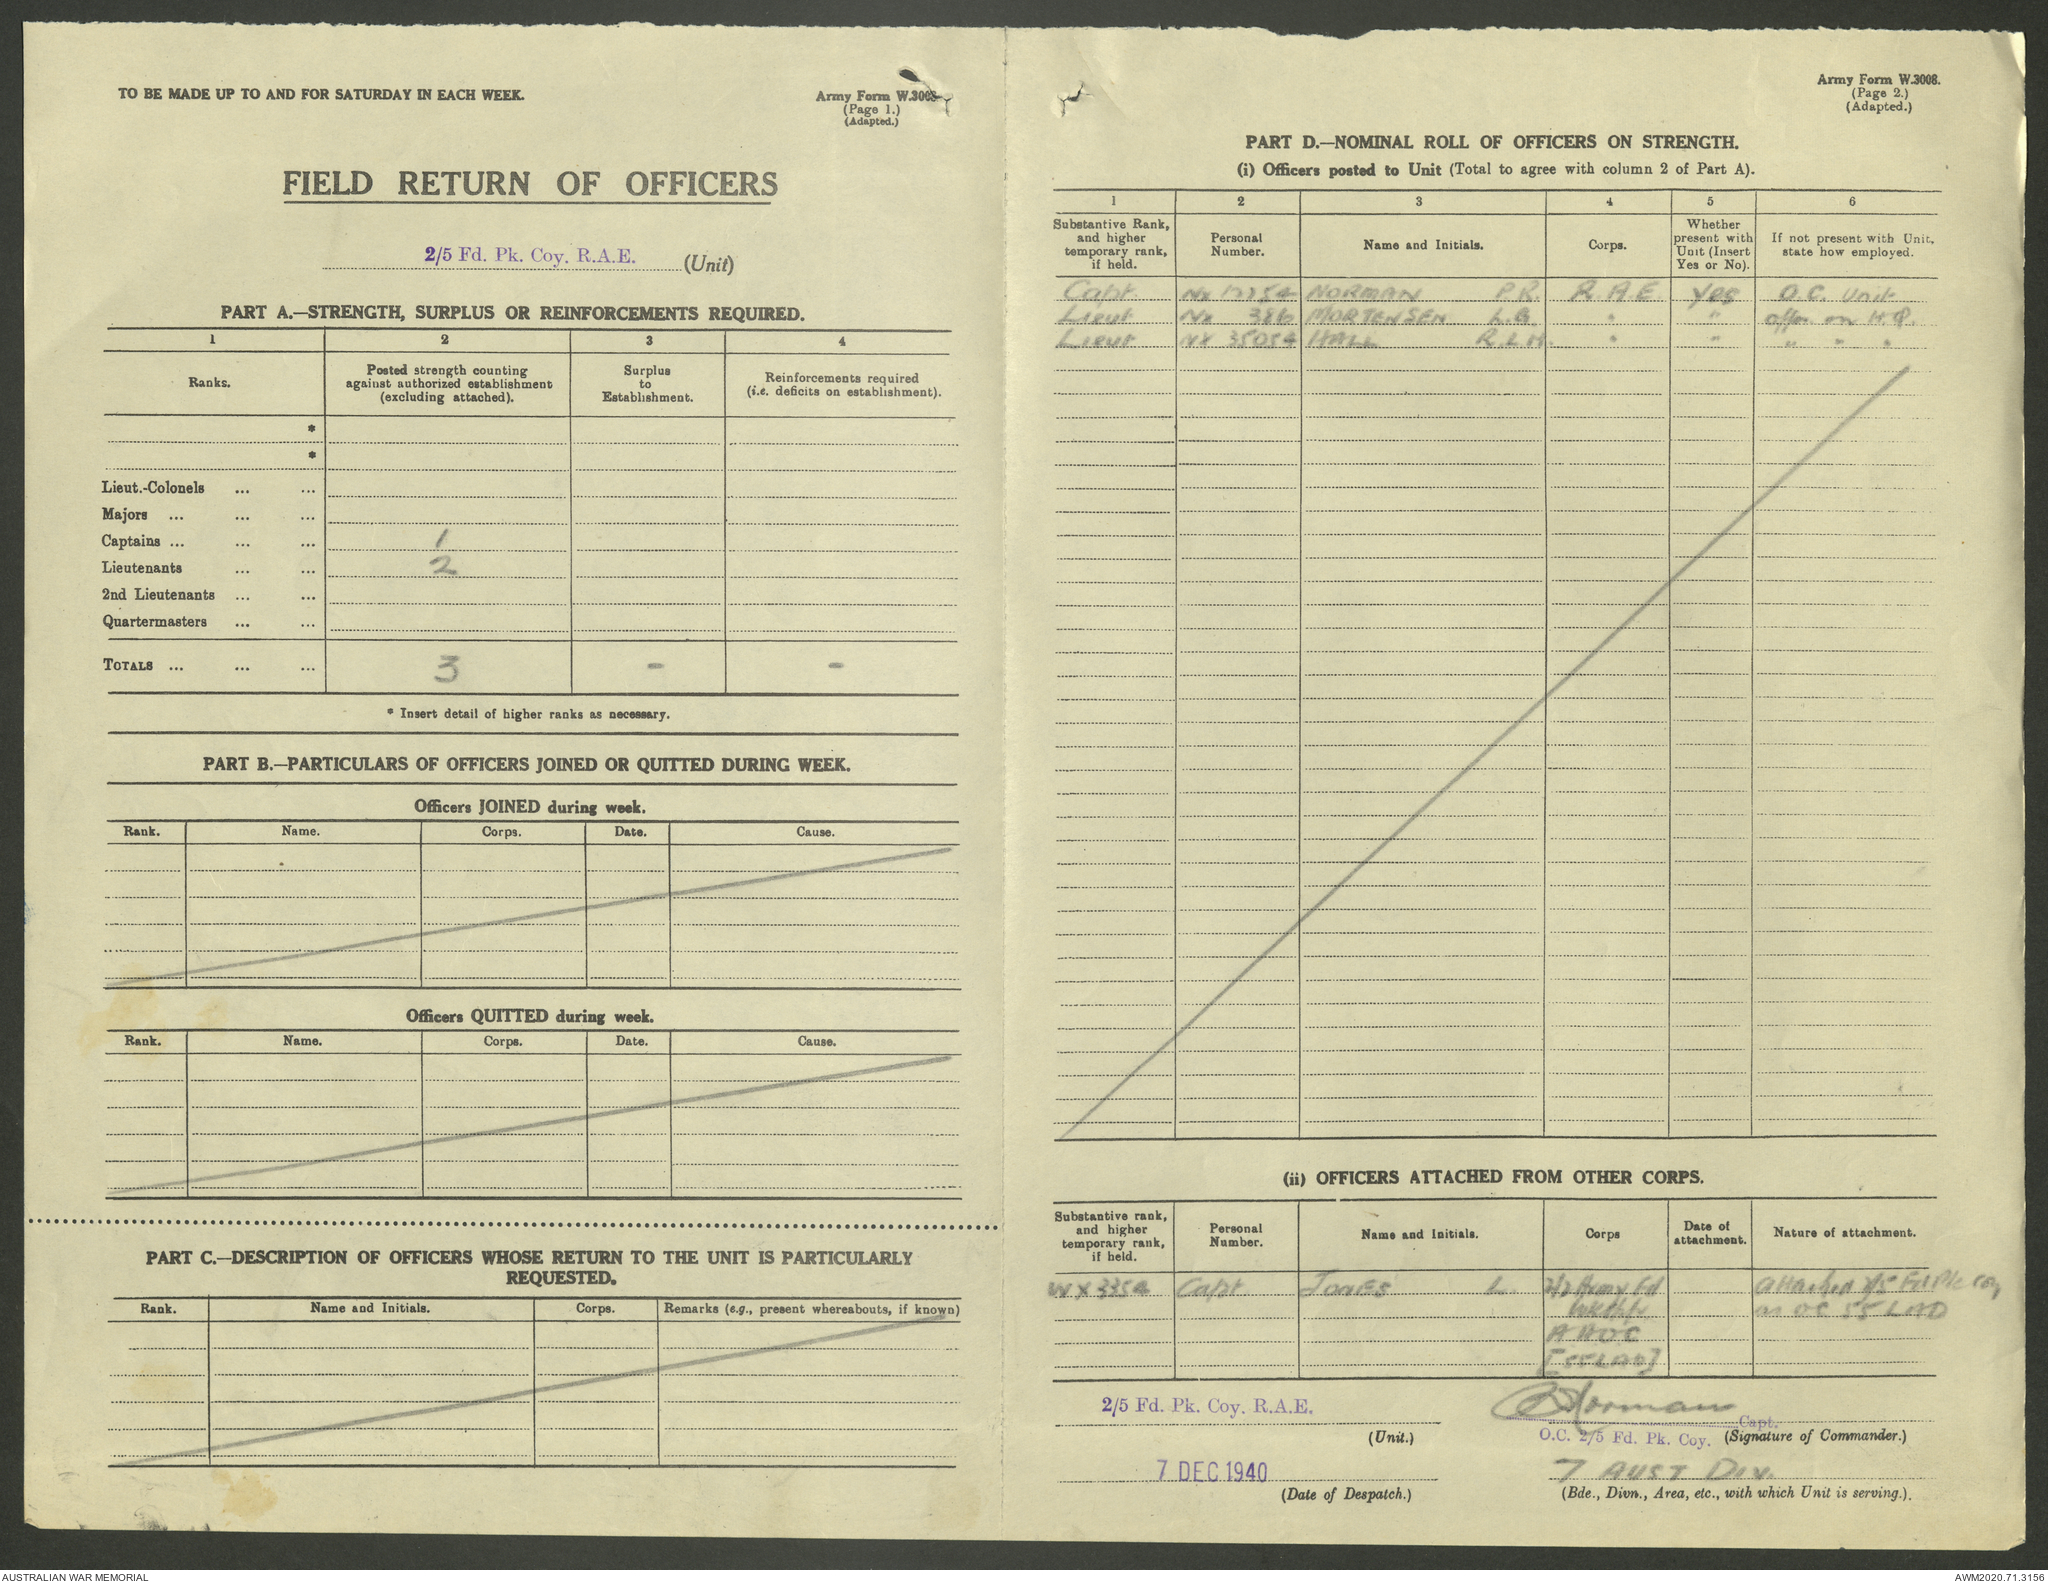 TO BE MADE UP TO AND FOR SATURDAY IN EACH WEEK.
Army Form W.3008
(Page 1.)
(Adapted.)
FIELD RETURN OF OFFICERS
2/5 Fd. Pk. Coy. R.A.E. (Unit)
PART A.—STRENGTH, SURPLUS OR REINFORCEMENTS REQUIRED.
1 2 3 4
Ranks. Posted strength counting against authorized establishment (excluding attached). Surplus to Establishment. Reinforcements required (i.e. deficits on establishment).
*
*
Lieut.-Colonels ... ...
Majors ... ... ...
Captains ... ... ... 1
Lieutenants ... ... 2
2nd Lieutenants ... ...
Quartermasters ... ...
TOTALS ... ... ... 3 - -
* Insert detail of higher ranks as necessary.
PART B.—PARTICULARS OF OFFICERS JOINED OR QUITTED DURING WEEK.
Officers JOINED during week.
Rank. Name. Corps. Date. Cause.
Officers QUITTED during week.
Rank. Name. Corps. Date. Cause.
PART C.—DESCRIPTION OF OFFICERS WHOSE RETURN TO THE UNIT IS PARTICULARLY
REQUESTED.
Rank. Name and Initials. Corps. Remarks (e.g., present whereabouts, if known)
Army Form W.3008.
(Page 2.)
(Adapted.)
PART D.—NOMINAL ROLL OF OFFICERS ON STRENGTH.
(i) Officers posted to Unit (Total to agree with column 2 of Part A).
1 2 3 4 5 6
Substantive Rank, and higher temporary rank, if held. Personal Number. Name and Initials. Corps. Whether present with Unit (Insert Yes or No). If not present with Unit, state how employed.
Capt. NX 12254 NORMAN P.R. R.A.E. Yes O.C. Unit
Lieut NX 386 MORTENSEN L.G. " " offr. on H.Q.
Lieut NX 35054 HALL R.L.H. " " " " "
(ii) OFFICERS ATTACHED FROM OTHER CORPS.
Substantive rank, and higher temporary rank, if held. Personal Number. Name and Initials. Corps Date of attachment. Nature of attachment.
WX 3354 Capt JONES L. Army Fd attached 2/5 Fd Pk Coy
as OC 55 LAD
AAOC
[55 LAD]
2/5 Fd. Pk. Coy. R.A.E.
(Unit.)
PRNorman Capt.
O.C. 2/5 Fd. Pk. Coy. (Signature of Commander.)
7 DEC 1940
(Date of Despatch.)
7 AUST DIV.
(Bde., Divn., Area, etc., with which Unit is serving.).
AUSTRALIAN WAR MEMORIAL
AWM2020.71.3156